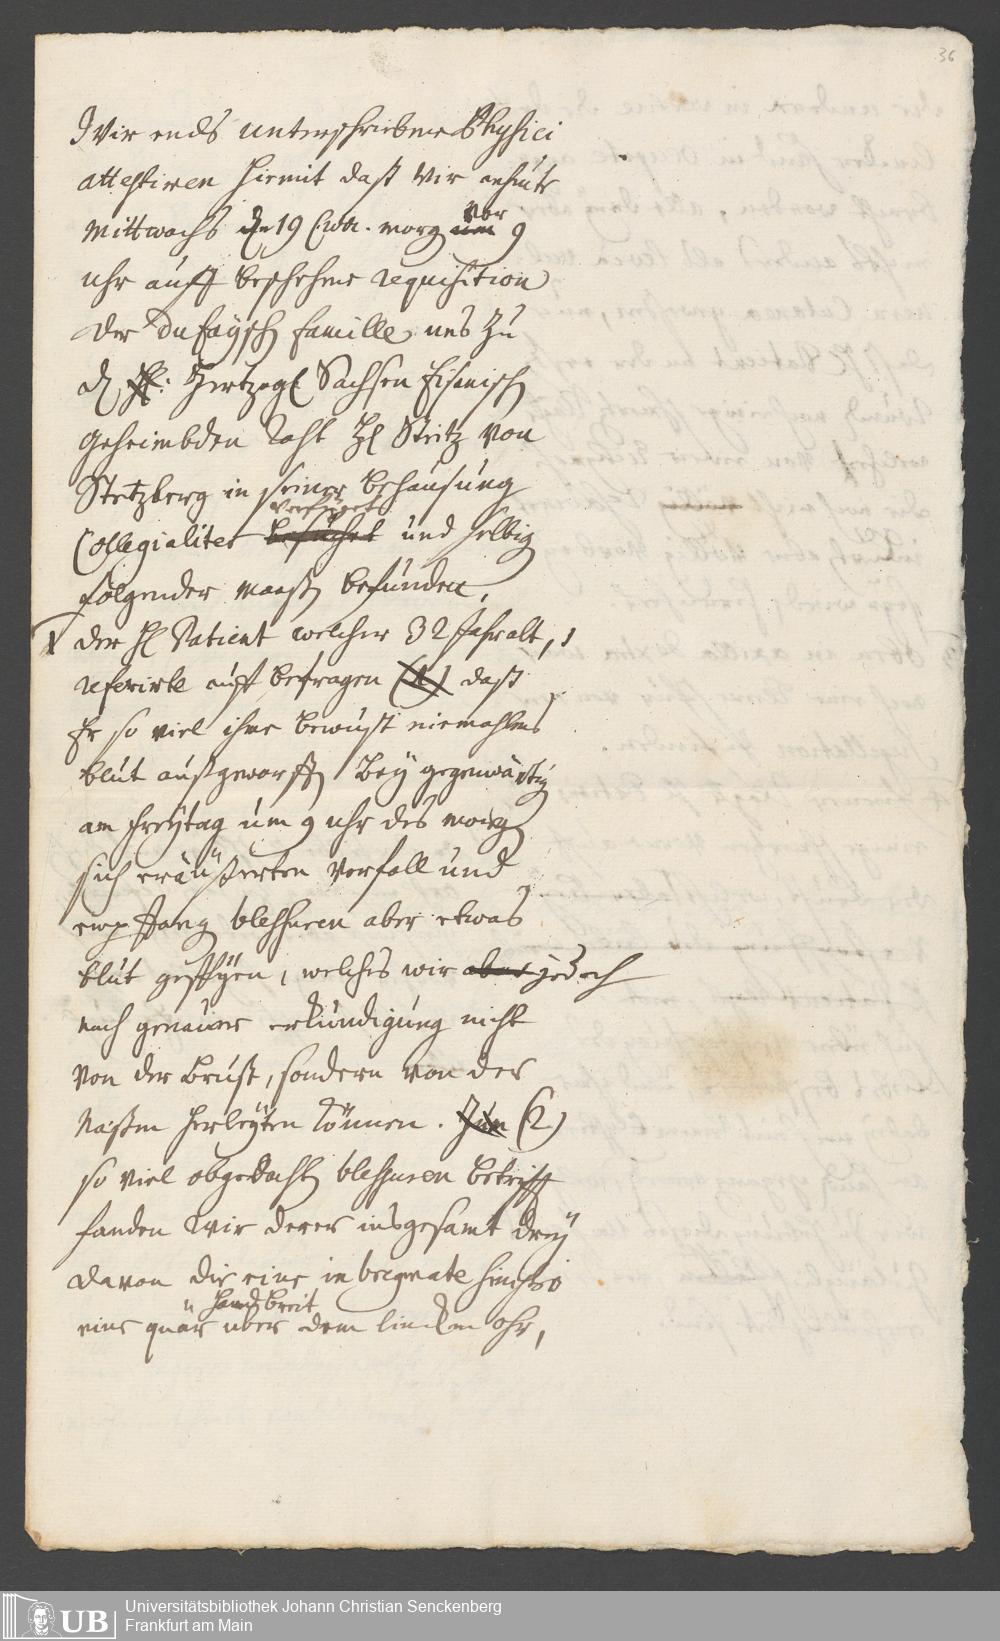 36
Wir ends unterschriebene Physici
attestiren hiermit daß Wir anheute
Mittwochs den 19 morg um vor 9
uhr auff beschehene requisition
der DuFaysch familie uns zu
d H: Hertzogl Sachsen Eisenisch
geheimbden Raht Hl Stetz von
Stetzberg in seiner behausung
Collegialiter besuchet verfüget und selbig
folgender maaß befunden,
1 der Hl Patient welcher 32 Jahr alt,
referirte auff befragen (1) daß
Er so viel ihme bewust niemahlens
blut außgeworffen bey gegenwärtig
am Freytag um 9 uhr des morg
sich eräußerten Vorfall und
empfang blessuren aber etwas
blut gespyen, welches wir aber jedoch
nach genauer erkundigung nicht
von der Brust, sondern von der
Naßen herleyten können. Zum (2)
so viel obgedacht blessuren betrifft
fanden wir derer insgesamt drey
davon die eine in bregmate sinistro
eine quär handbreit uber dem lincken ohr,
UB
Universitätsbibliothek Johann Christian Senckenberg
Frankfurt am Main